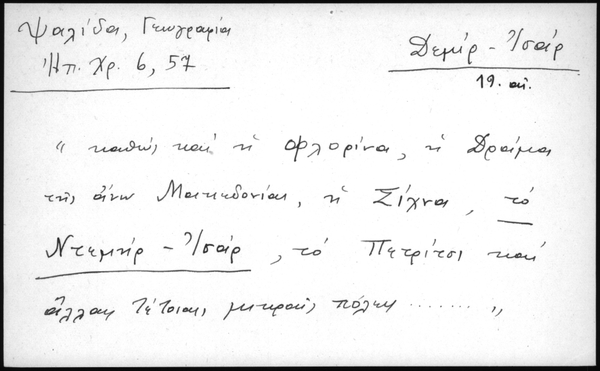 Ψαλίδα, Γεωγραφία
Ἠπ. Χρ. 6, 57
Δεμίρ - Ἱσάρ
19. αἰ.
" καθὼς καὶ ἡ Φλορίνα, ἡ Δράμα
τῆς ἄνω Μακεδονίας, ἡ Σίχνα, τὸ
Ντεμὴρ - Ἱσάρ, τὸ Πετρίτσι καὶ
ἄλλαι τέτοιαι μικραὶς πόλεις ........ "